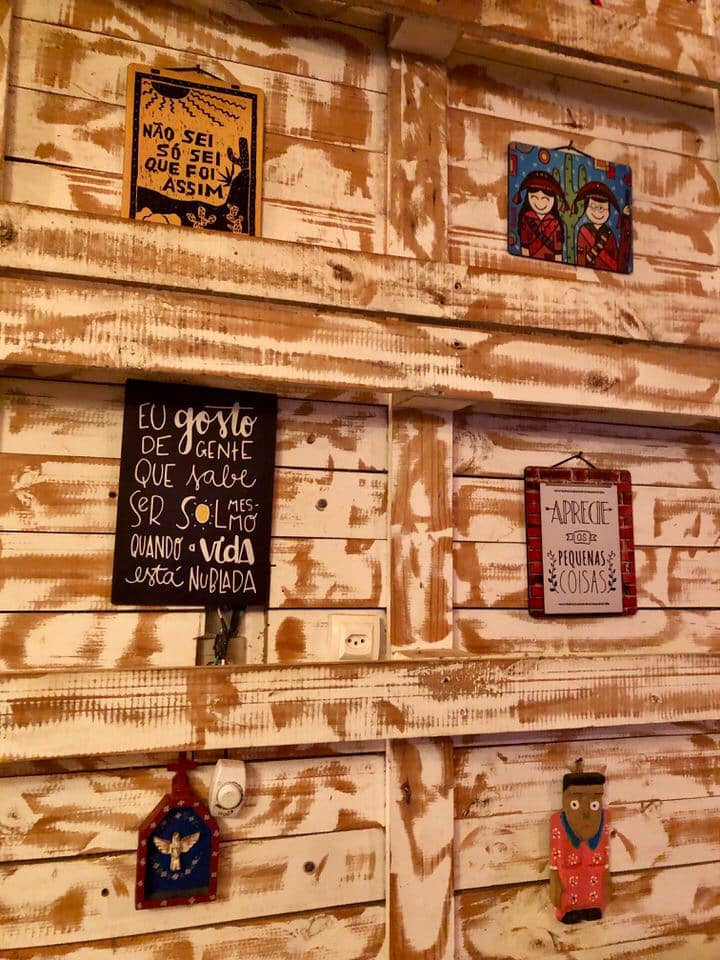 NÃO SEI
SÓ SEI
QUE FOI
ASSIM
EU gosto
DE GENTE
QUE sabe
SER SOL MES-
MO
QUANDO a VIDA
está NUBLADA
APRECIE
AS
PEQUENAS
COISAS